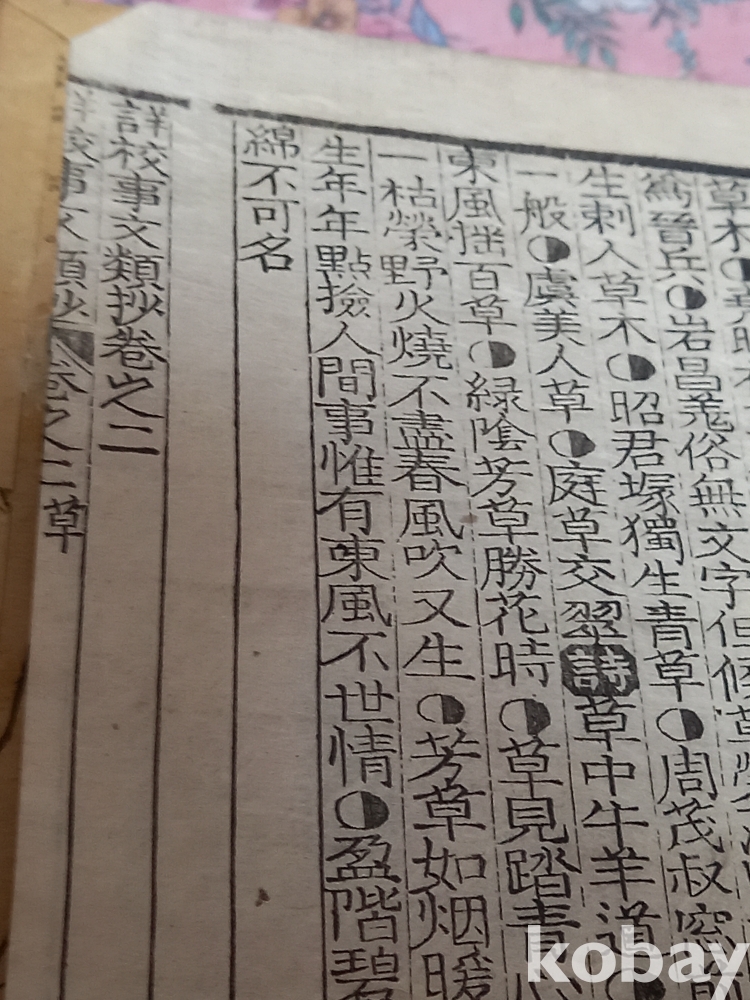 草木
爲晉兵◑岩昌羌俗無文字但候草榮
生刺人草木◑昭君塚獨生青草◑周茂叔窓前
一般◑虞美人草◑庭草交翠詩草中牛羊道◑
東風揺百草◑緑陰芳草勝花時◑草見踏青心
一枯榮野火燒不盡春風吹又生◑芳草如烟暖
生年年點撿人間事惟有東風不世情◑盈階碧
綿不可名
詳校事文類抄卷之二
詳校事文類抄 卷之二 草
kobay